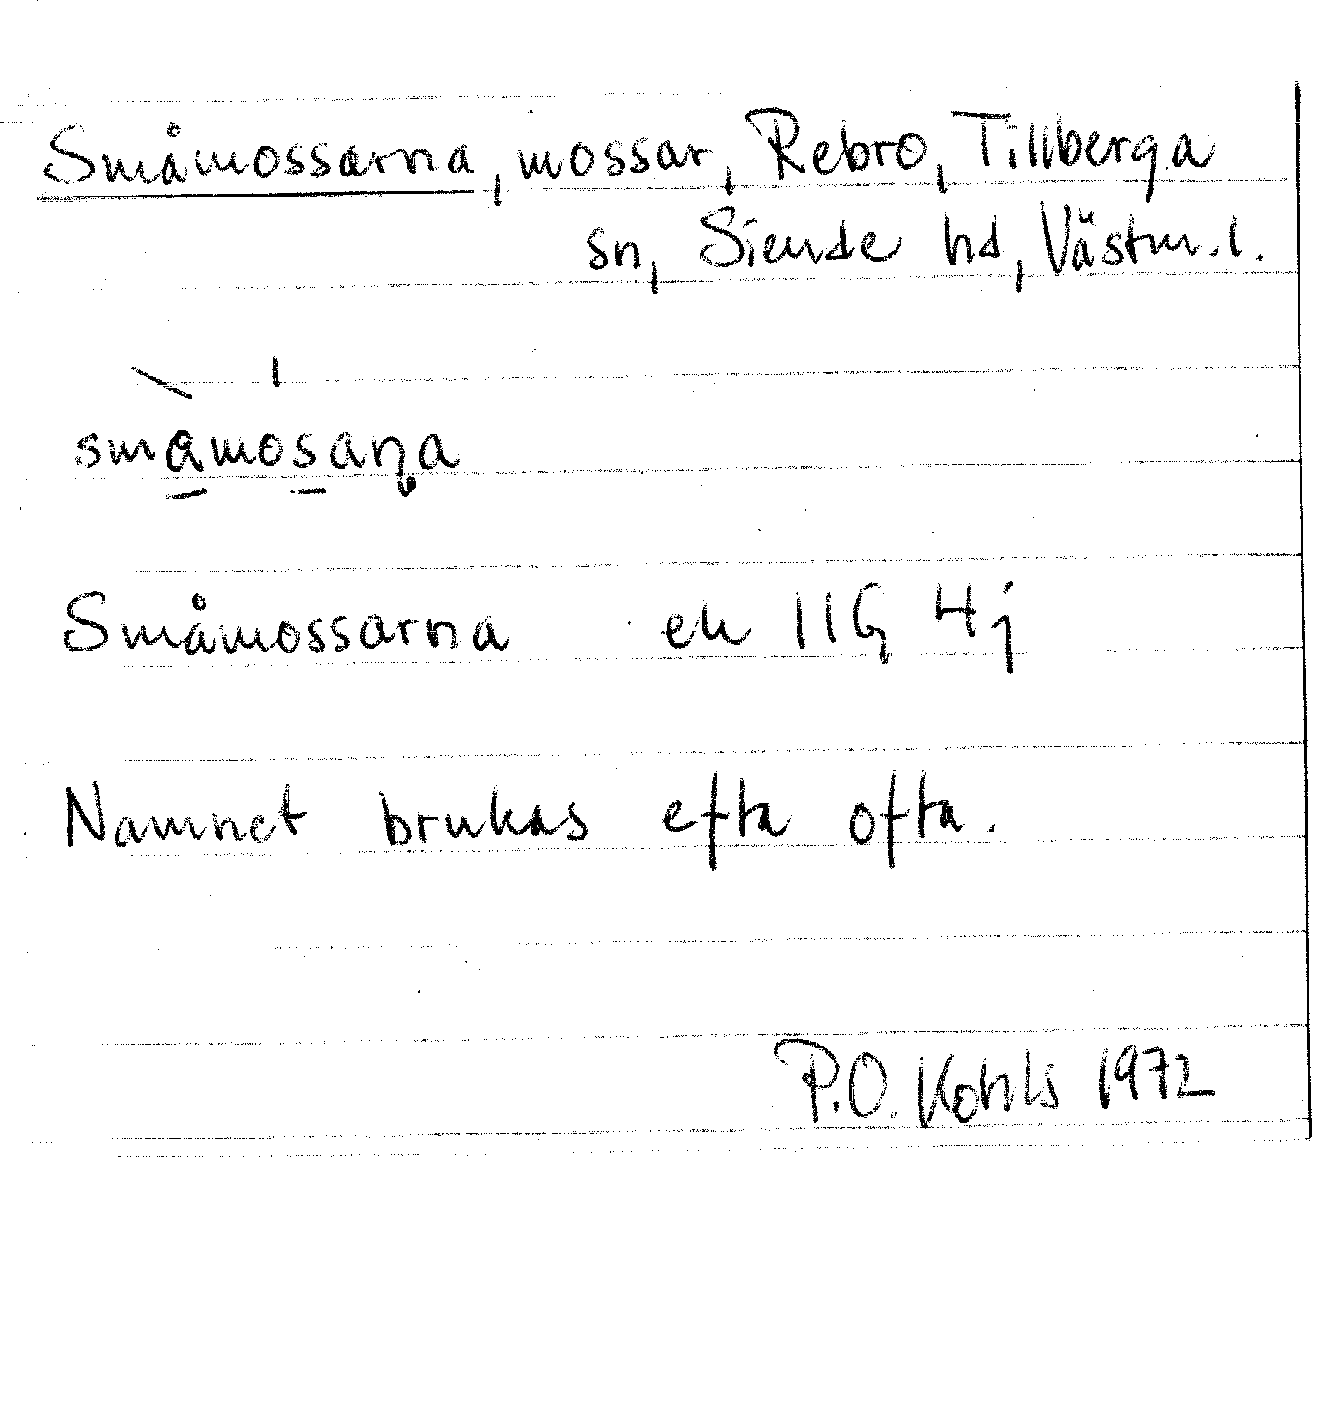 Småmossarna, mossar, Rebro, Tillberga
sn, Siende hd, Västm.l.
småmosaṇa
Småmossarna ek 11G 4j
Namnet brukas efta ofta.
P.O. Kohls 1972